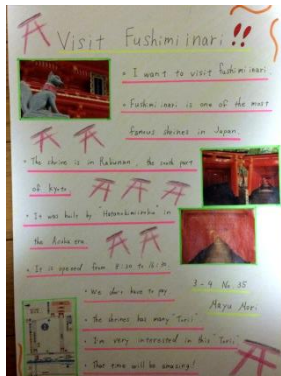 Visit Fushimi inari !!
・I want to visit fushimi inari.
・Fushimi inari is one of the most
famous shrines in Japan.
・The shrine is in Rakunan, the south part
of kyoto.
・It was built by "Hatanokimiiroku" in
the Asuka era.
・It is opened from 8:30 to 16:30.
・We don't have to pay.
・the shrines has many "Torii"
・I'm very interested in this "Torii"
・That time will be amazing!
3-4 No. 35
Mayu Mori